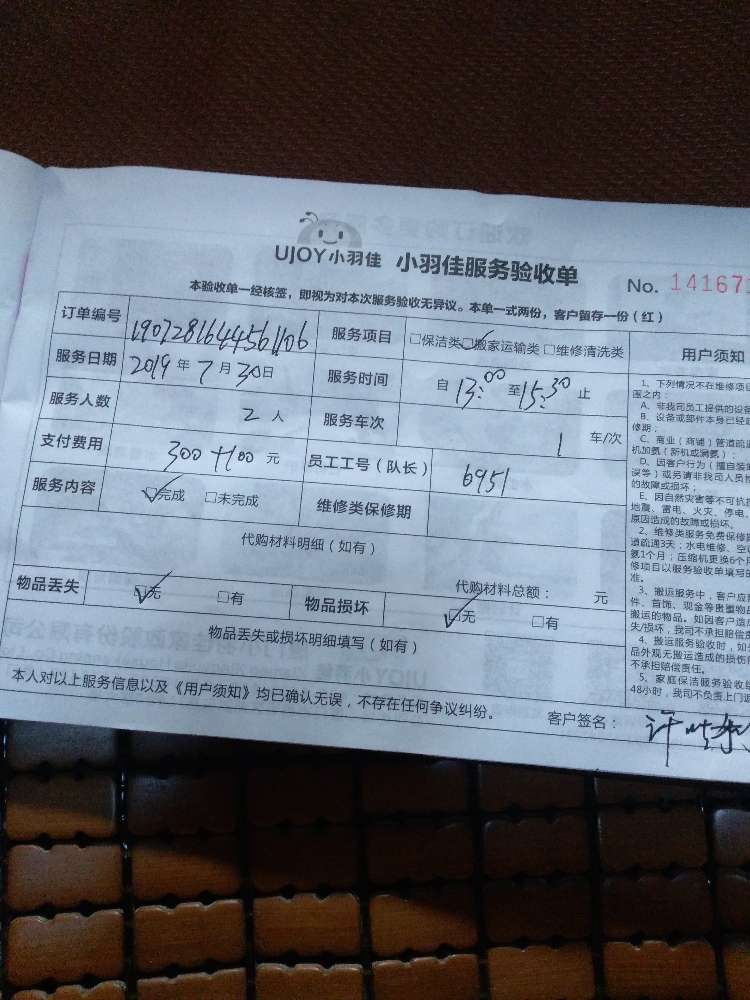 UJOY小羽佳 小羽佳服务验收单
No. 141671
本验收单一经核签，即视为对本次服务验收无异议。本单一式两份，客户留存一份（红）
订单编号 服务项目 □保洁类□搬家运输类□维修清洗类
服务日期 2019年7月30日 服务时间 自13:00至15:30止
服务人数 2人 服务车次 1车/次
支付费用 300+100元 员工工号（队长） 6951
服务内容 □完成 □未完成 维修类保修期
代购材料明细（如有）
代购材料总额： 元
物品丢失 □无 □有 物品损坏 □无 □有
物品丢失或损坏明细填写（如有）
本人对以上服务信息以及《用户须知》均已确认无误，不存在任何争议纠纷。 客户签名：
用户须知
1、下列情况不在维修项
围之内：
A、非我司员工提供的设备
B、设备或部件本身已经
修期；
C、商业（商铺）管道疏
机加氨（新机或漏氨）；
D、因客户行为（擅自装
误等）或另请非我司人员
的故障或损坏；
E、因自然灾害等不可抗
地震、雷电、火灾、停电、
原因造成的故障或损坏。
2、维修类服务免费保修
道疏通3天；水电维修、空
氨1个月；压缩机更换6个月
修项目以服务验收单填写
准。
3、搬运服务中，客户应
件、首饰、现金等贵重物
搬运的物品。如因客户造
失/损坏，我司不承担赔偿
4、搬运服务验收时，如
品外观无搬运造成的损伤
不承担赔偿责任。
5、家庭保洁服务验收
48小时，我司不负责上门